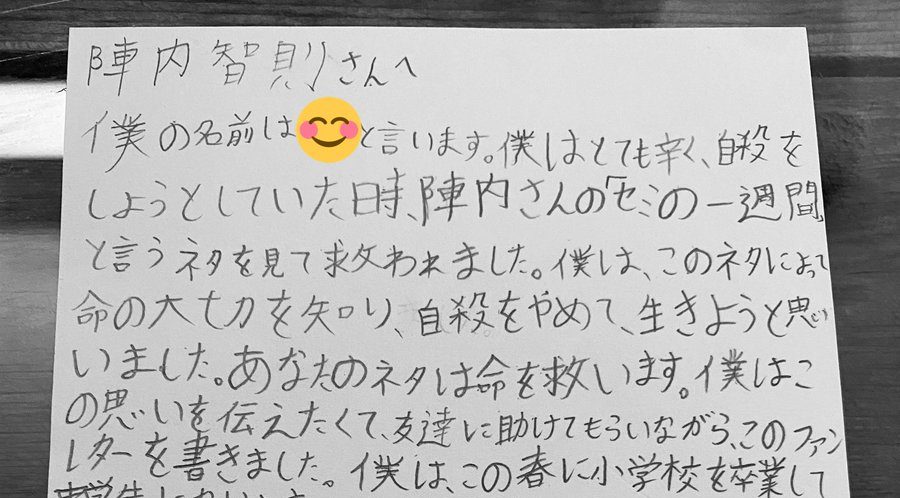 陣内智則さんへ
僕の名前は😊と言います。僕はとても辛く、自殺を
しようとしていた時、陣内さんの「セミの一週間」
と言うネタを見て救われました。僕は、このネタによって
命の大切を知り、自殺をやめて、生きようと思い
いました。あなたのネタは命を救います。僕はこ
の思いを伝えたくて、友達に助けてもらいながら、このファン
レターを書きました。僕は、この春に小学校を卒業して